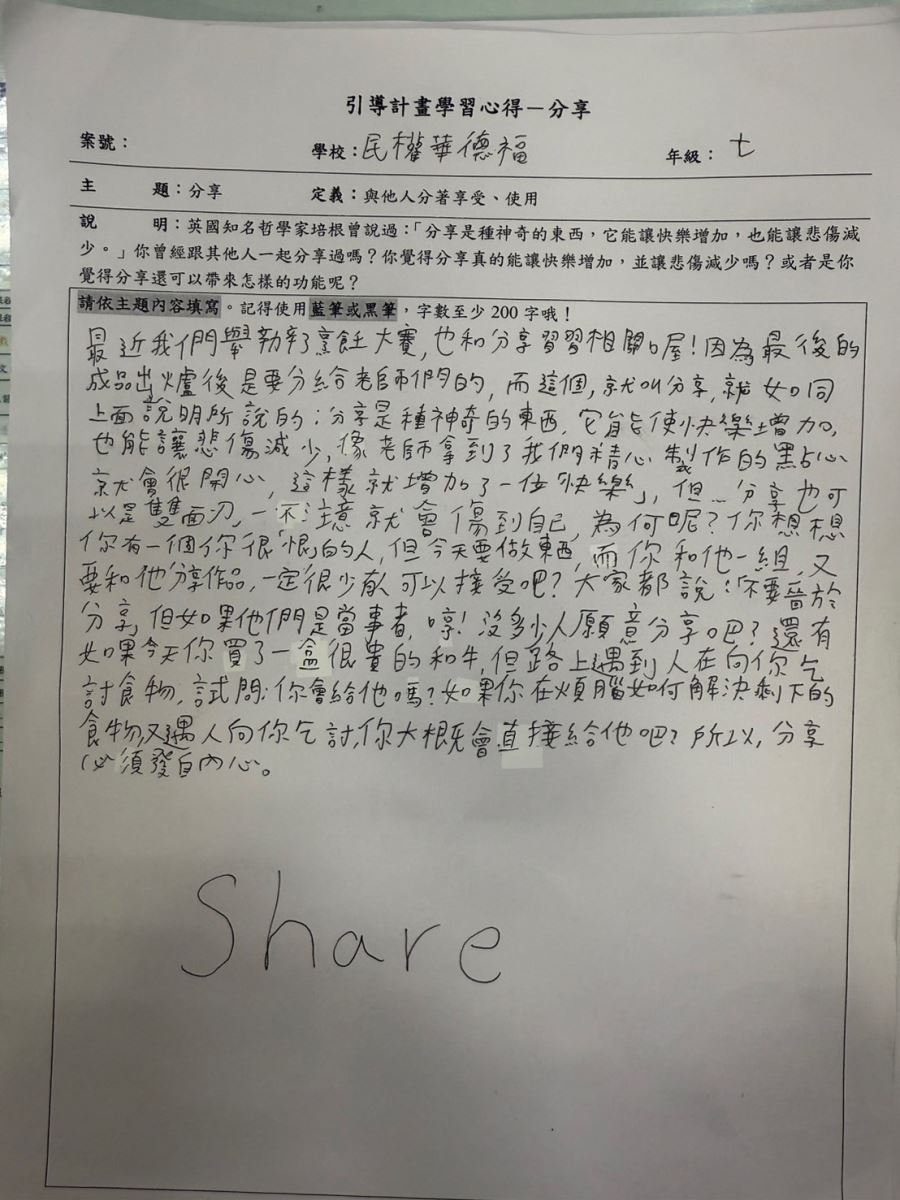 引導計畫學習心得－分享
案號：
學校：民權華德福
年級：七
主 題：分享 定義：與他人分著享受、使用
說 明：英國知名哲學家培根曾說過：「分享是種神奇的東西，它能讓快樂增加，也能讓悲傷減
少。」你曾經跟其他人一起分享過嗎？你覺得分享真的能讓快樂增加，並讓悲傷減少嗎？或者是你
覺得分享還可以帶來怎樣的功能呢？
請依主題內容填寫。記得使用藍筆或黑筆，字數至少 200 字哦！
最近我們舉辦了烹飪大賽，也和分享習習相關喔！因為最後的
成品出爐後是要分給老師們的，而這個，就叫分享，就如同
上面說明所說的：分享是種神奇的東西，它能使快樂增加，
也能讓悲傷減少，像老師拿到了我們精心製作的點心
就會很開心，這樣就增加了一位「快樂」，但…分享也可
以是雙面刃，一不注意就會傷到自己，為何呢？你想想
你有一個你很「恨」的人，但今天要做東西，而你和他一組，又
要和他分享作品，一定很少人可以接受吧？大家都說：「不要吝於
分享」，但如果他們是當事者，哼！沒多少人願意分享吧？還有
如果今天你買了一盒很貴的和牛，但路上遇到人在向你乞
討食物，試問：你會給他嗎？如果你在煩腦如何解決剩下的
食物，又遇人向你乞討，你大概會直接給他吧？所以，分享
必須發自內心。
Share